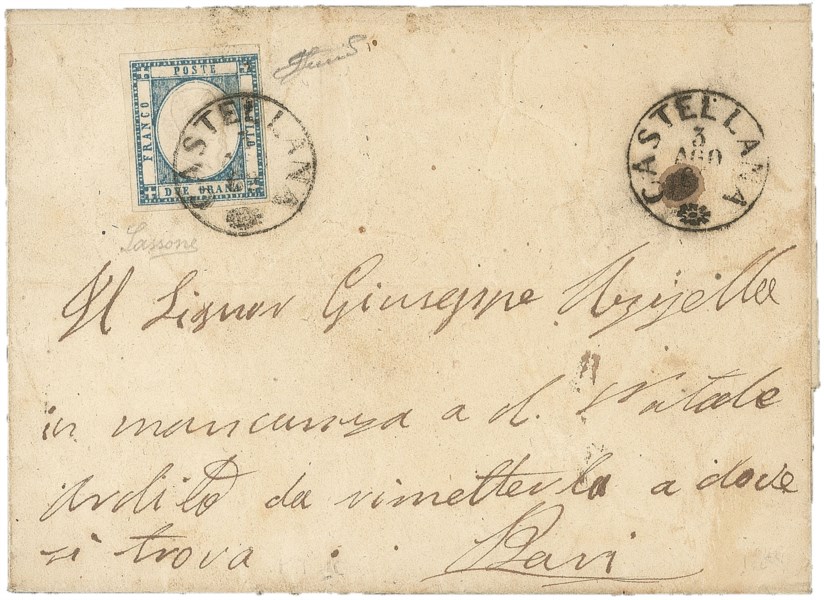 POSTE
FRANCO
BOLLO
DUE GRANA
CASTELLANA
CASTELLANA
3
AGO
Sassone
Al Signor Giuseppe
in mancanza a d. Natale
Ardito da rimetterla a dove
si trova Bari